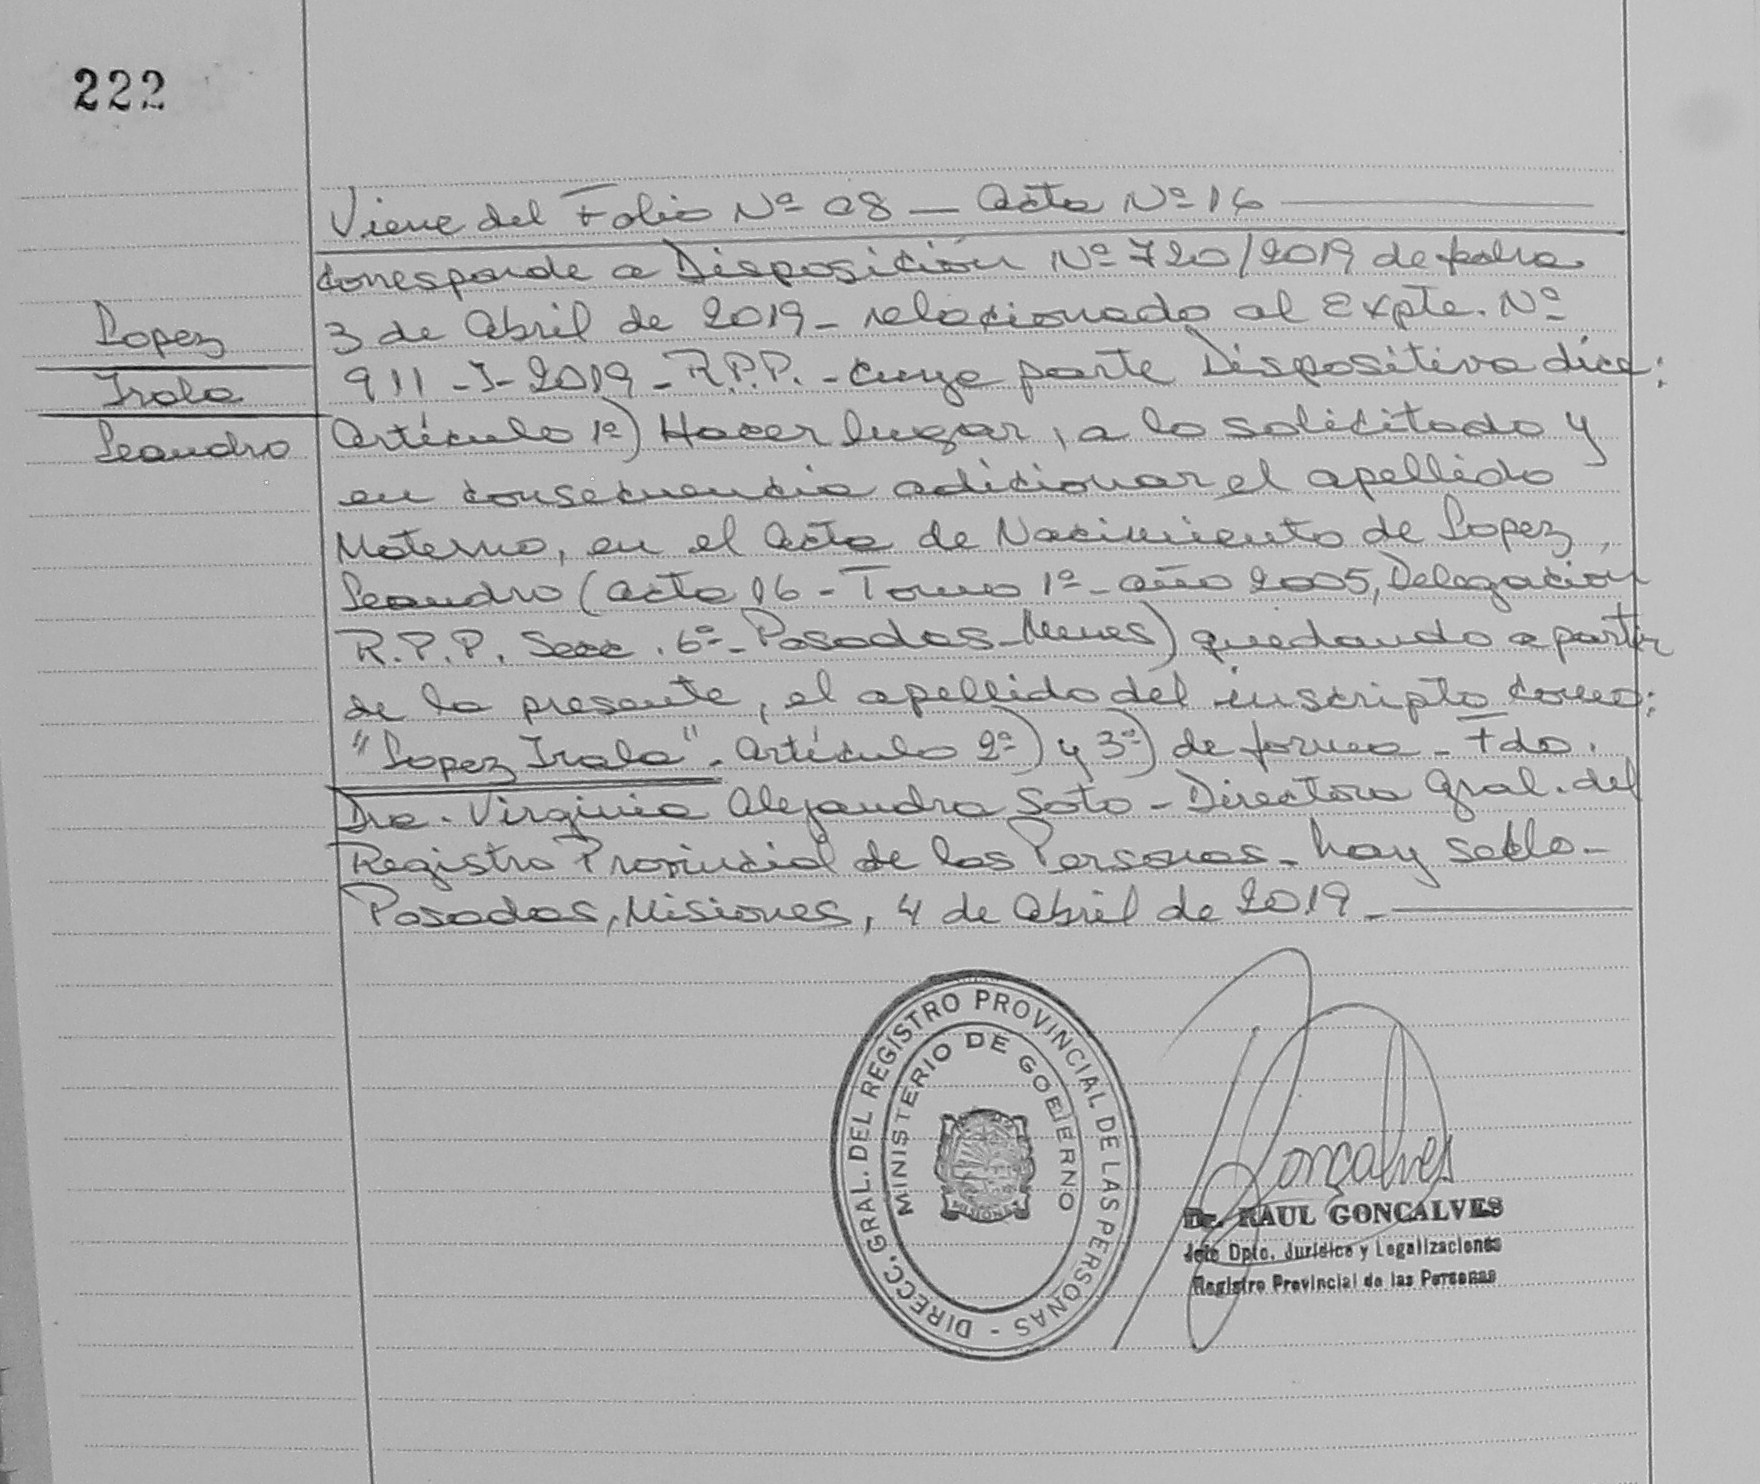 222
Viene del Folio Nº 08 — Acta Nº 16
corresponde a Disposición Nº 720/2019 de fecha
3 de Abril de 2019 - relacionado al Expte. Nº
911 - I - 2019 - R.P.P. - cuya parte Dispositiva dice:
Artículo 1º) Hacer lugar, a lo solicitado y
en consecuencia adicionar el apellido
Materno, en el Acta de Nacimiento de Lopez,
Leandro (Acta 16 - Tomo 1º - año 2005, Delegación
R.P.P. Secc. 6º - Posadas - Mnes) quedando a partir
de la presente, el apellido del inscripto como:
"Lopez Irala". Artículo 2º) y 3º) de forma - Fdo.
Dra. Virginia Alejandra Soto - Directora Gral. del
Registro Provincial de las Personas - hay sello -
Posadas, Misiones, 4 de Abril de 2019.
Lopez
Irala
Leandro
DIRECC. GRAL. DEL REGISTRO PROVINCIAL DE LAS PERSONAS -
MINISTERIO DE GOBIERNO
MISIONES
Gonçalves
Dr. RAUL GONCALVES
Jefe Dpto. Jurídico y Legalizaciones
Registro Provincial de las Personas